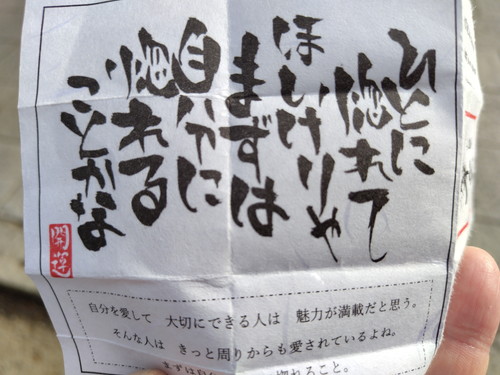 ひとに
惚れて
ほしけりゃ
まずは
自分に
惚れる
ことかな
開運
自分を愛して 大切にできる人は 魅力が満載だと思う。
そんな人は きっと周りからも愛されているよね。
まずは
惚れること。